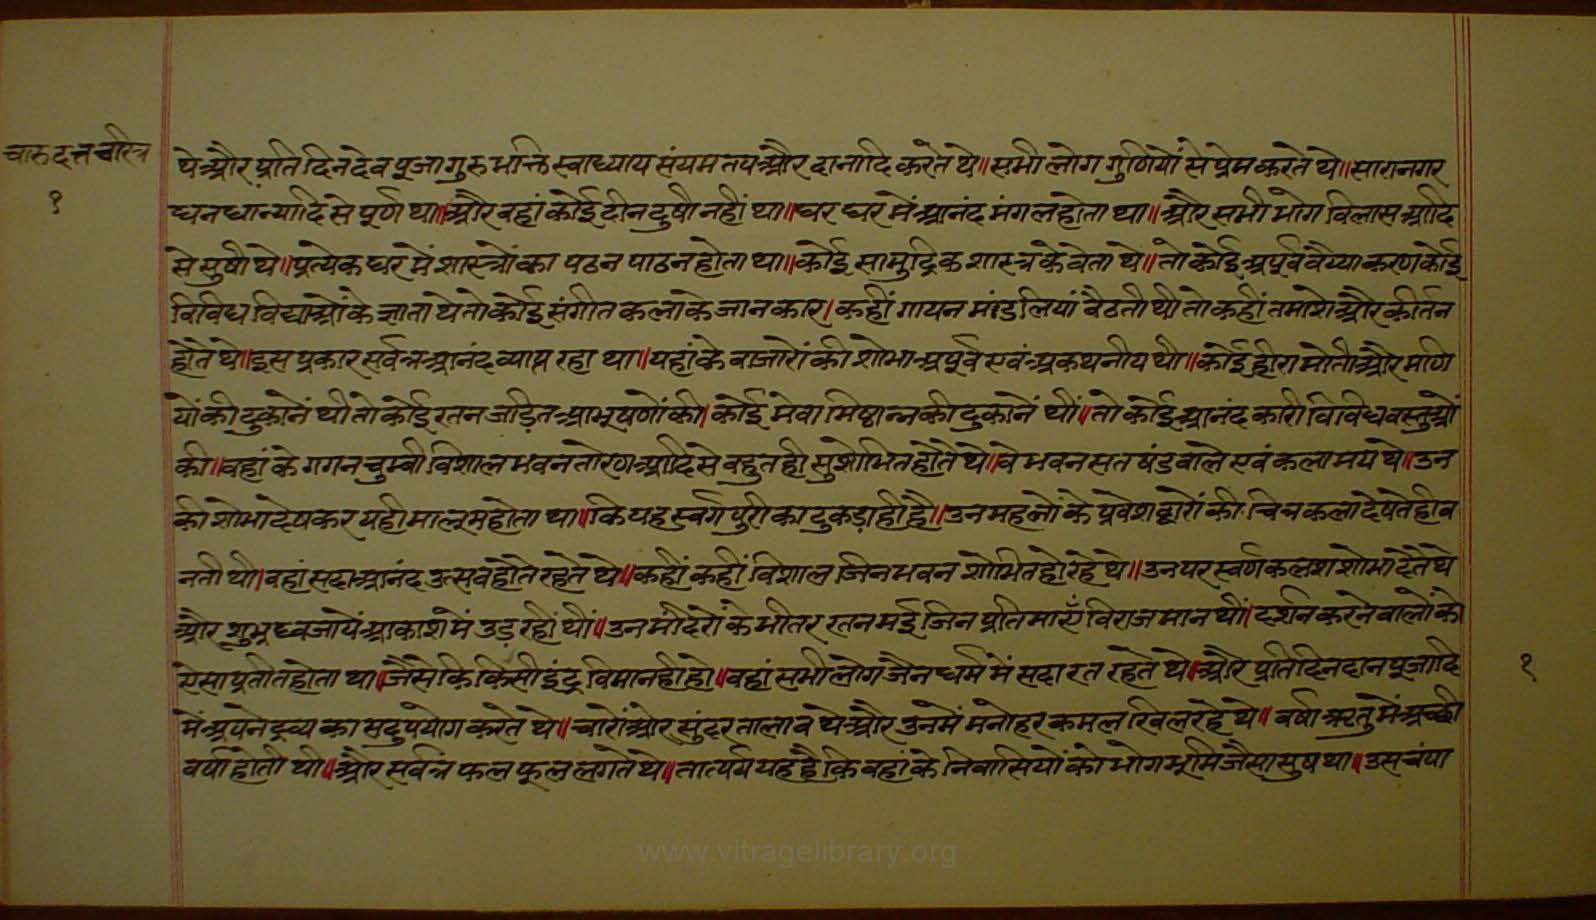 चारुदत्त चरित्र
१
थे और प्रति दिन देव पूजा गुरु भक्ति स्वाध्याय संयम तप और दानादि करते थे॥ सभी लोग गुणियों से प्रेम करते थे॥ सारा नगर
धन धान्यादि से पूर्ण था॥ और वहां कोई दीन दुषी नहीं था॥ घर घर में आनंद मंगल होता था॥ और सभी भोग विलास आदि
से सुषी थे॥ प्रत्येक घर में शास्त्रों का पठन पाठन होता था॥ कोई सामुद्रिक शास्त्र के वेता थे॥ तो कोई अपूर्व वैय्याकरण कोई
विविध विद्याओं के ज्ञाता थे तो कोई संगीत कला के जानकार। कहीं गायन मंडलियां बैठती थी तो कहीं तमाशे और कीर्तन
होते थे॥ इस प्रकार सर्वत्र आनंद व्याप्त रहा था॥ यहां के बाजारों की शोभा अपूर्व एवं अकथनीय थी॥ कोई हीरा मोती और मणि
यों की दुकानें थी तो कोई रतन जड़ित आभूषणों की। कोई मेवा मिष्ठान्न की दुकानें थीं॥ तो कोई आनंदकारी विविध वस्तुओं
की॥ वहां के गगन चुम्बी विशाल भवन तोरण आदि से बहुत ही सुशोभित होते थे॥ वे भवन सत षंड वाले एवं कलामय थे॥ उन
की शोभा देषकर यही मालूम होता था॥ कि यह स्वर्ग पुरी का टुकड़ा ही है॥ उन महलों के प्रवेश द्वारों की चित्रकला देषते ही ब
नती थी। वहां सदा आनंद उत्सव होते रहते थे॥ कहीं कहीं विशाल जिन भवन शोभित हो रहे थे॥ उन पर स्वर्ण कलश शोभा देते थे
और शुभ्र ध्वजायें आकाश में उड़ रहीं थीं॥ उन मंदिरों के भीतर रतनमई जिन प्रतिमाएँ विराजमान थीं। दर्शन करने वालों को
ऐसा प्रतीत होता था॥ जैसे कि किसी इंद्र विमान ही हो॥ वहां सभी लोग जैन धर्म में सदा रत रहते थे॥ और प्रतिदिन दान पूजादि
में अपने द्रव्य का सदुपयोग करते थे॥ चारों ओर सुंदर तालाब थे और उनमें मनोहर कमल खिल रहे थे॥ वर्षा ऋतु में अच्छी
वर्षा होती थी॥ और सर्वत्र फल फूल लगते थे॥ तात्पर्य यह है कि वहां के निवासियों को भोग भूमि जैसा सुष था॥ उस चंपा
१
www.vitragelibrary.org